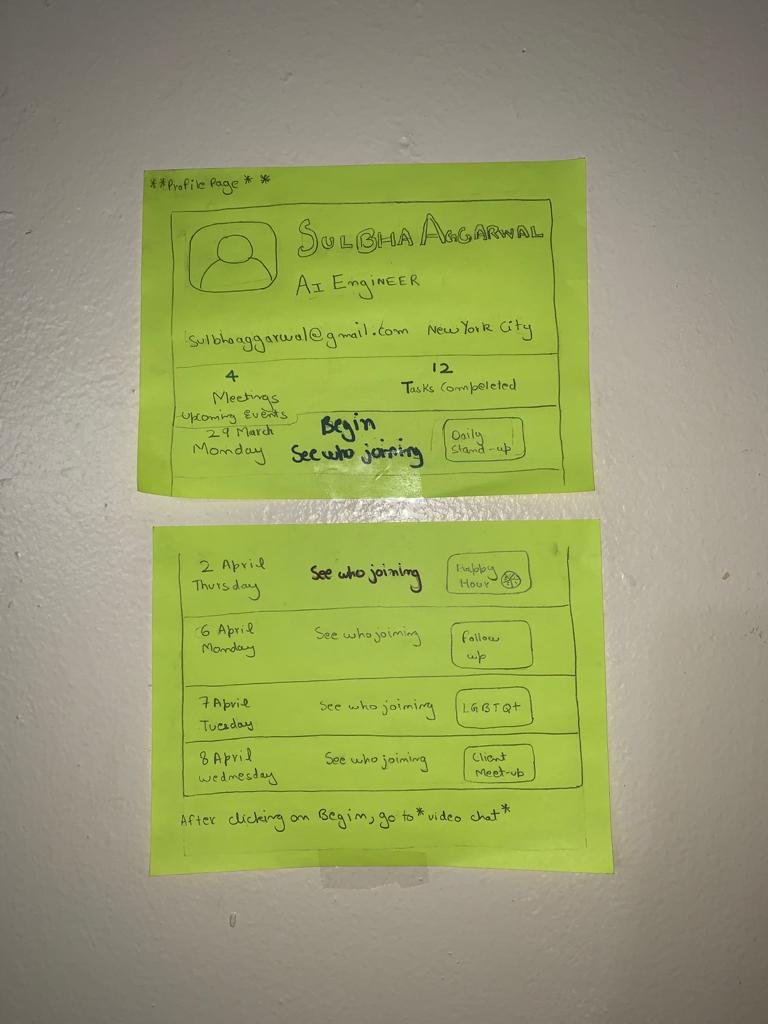 **Profile Page**
SULBHA AGGARWAL
AI EngiNEER
sulbhaaggarwal@gmail.com New York City
4
Meetings
12
Tasks Compeleted
Upcoming Events
29 March
Monday
Begin
See who joining
Daily
Stand-up
2 April
Thursday
See who joining
Happy
Hour
6 April
Monday
See who joining
Follow
up
7 April
Tuesday
See who joining
LGBTQ+
8 April
wednesday
See who joining
Client
Meet-up
After clicking on Begin, go to *video chat*